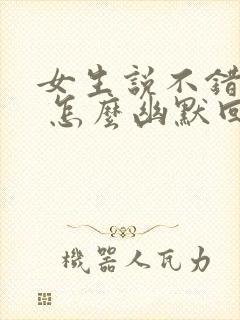 女生説不錯
怎麽幽默回
機器人瓦力